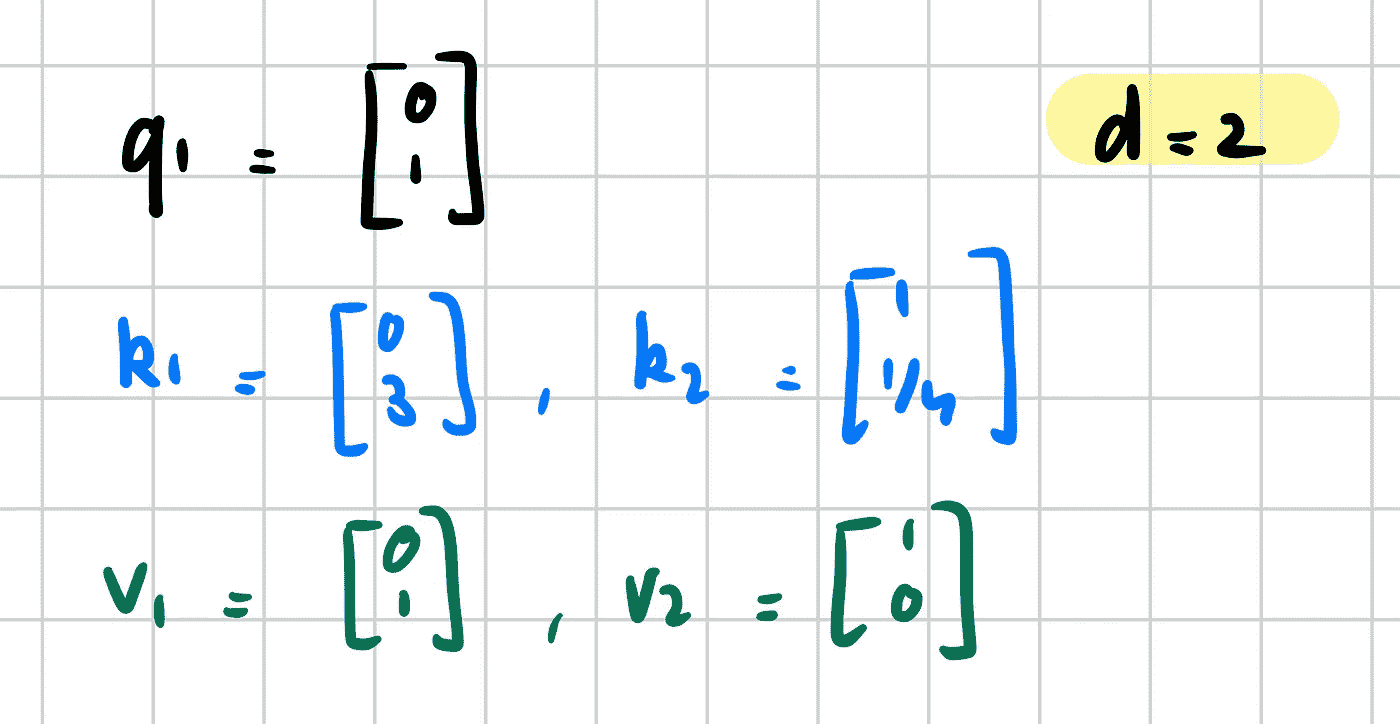 q₁ = [0 1] d = 2
k₁ = [0 3] , k₂ = [1 1/4]
v₁ = [0 1] , v₂ = [1 0]